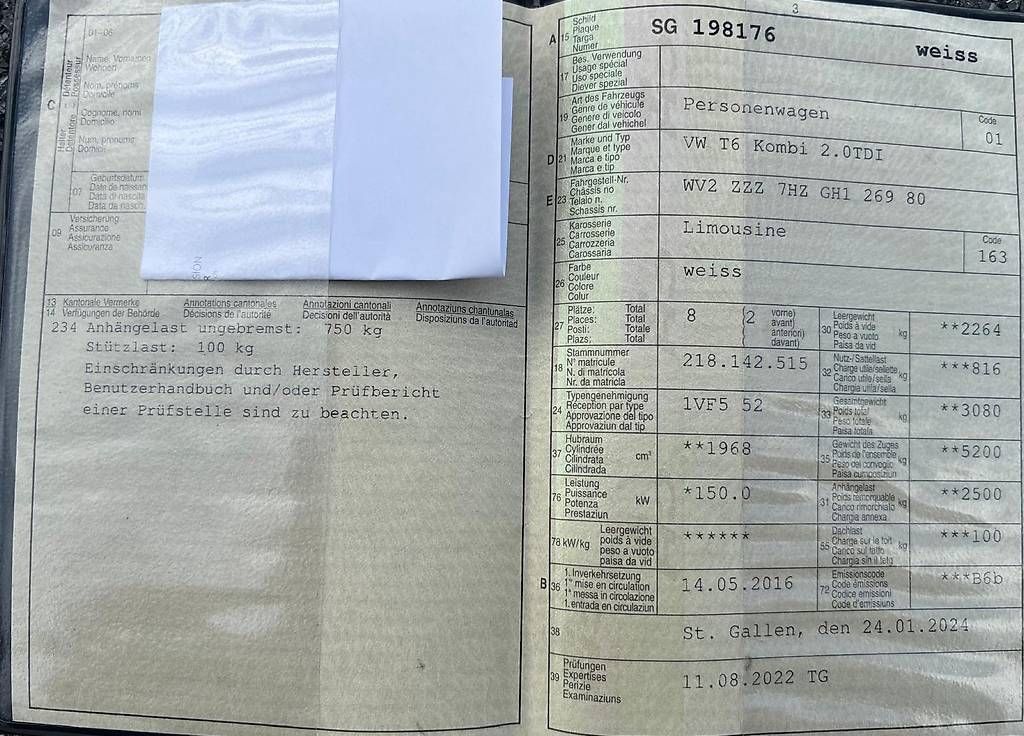 01-06
Name, Vornamen
Wohnort
Nom, prénoms
Domicile
Cognome, nomi
Domicilio
Num, prenums
Domicil
C
Halter
Détenteur
Detentore
Possessur
07
Geburtsdatum
Date de naissan
Data di nascita
Data da nasch
09
Versicherung
Assurance
Assicurazione
Assicuranza
13 Kantonale Vermerke Annotations cantonales Annotazioni cantonali Annotaziuns chantunalas
14 Verfügungen der Behörde Décisions de l'autorité Decisioni dell'autorità Disposiziuns da l'autoritad
234 Anhängelast ungebremst: 750 kg
Stützlast: 100 kg
Einschränkungen durch Hersteller,
Benutzerhandbuch und/oder Prüfbericht
einer Prüfstelle sind zu beachten.
3
A 15
Schild
Plaque
Targa
Numer
SG 198176 weiss
17
Bes. Verwendung
Usage spécial
Uso speciale
Diever spezial
19
Art des Fahrzeugs
Genre de véhicule
Genere di veicolo
Gener dal vehichel
Personenwagen
Code
01
D 21
Marke und Typ
Marque et type
Marca e tipo
Marca e tip
VW T6 Kombi 2.0TDI
E 23
Fahrgestell-Nr.
Châssis no
Telaio n.
Schassis nr.
WV2 ZZZ 7HZ GH1 269 80
25
Karosserie
Carrosserie
Carrozzeria
Carossaria
Limousine
Code
163
26
Farbe
Couleur
Colore
Colur
weiss
27
Plätze: Total
Places: Total
Posti: Totale
Plazs: Total
8 (2
vorne)
avant)
anteriori)
davant)
30
Leergewicht
Poids à vide
Peso a vuoto
Paisa da vid
kg
**2264
18
Stammnummer
N° matricule
N. di matricola
Nr. da matricla
218.142.515
32
Nutz-/Sattellast
Charge utile/sellette
Carico utile/sella
Chargia utila/sella
kg
***816
24
Typengenehmigung
Réception par type
Approvazione del tipo
Approvaziun dal tip
1VF5 52
33
Gesamtgewicht
Poids total
Peso totale
Paisa totala
kg
**3080
37
Hubraum
Cylindrée
Cilindrata
Cilindrada
cm³
**1968
35
Gewicht des Zuges
Poids de l'ensemble
Peso del convoglio
Paisa cumposiziun
kg
**5200
76
Leistung
Puissance
Potenza
Prestaziun
kW
*150.0
31
Anhängelast
Poids remorquable
Carico rimorchiato
Chargia annexa
kg
**2500
78 kW/kg
Leergewicht
poids à vide
peso a vuoto
paisa da vid
******
55
Dachlast
Charge sur le toit
Carico sul tetto
Chargia sin il tetg
kg
***100
B 36
1. Inverkehrsetzung
1re mise en circulation
1a messa in circolazione
1. entrada en circulaziun
14.05.2016
72
Emissionscode
Code émissions
Codice emissioni
Code d'emissiuns
***B6b
38
St. Gallen, den 24.01.2024
39
Prüfungen
Expertises
Perizie
Examinaziuns
11.08.2022 TG